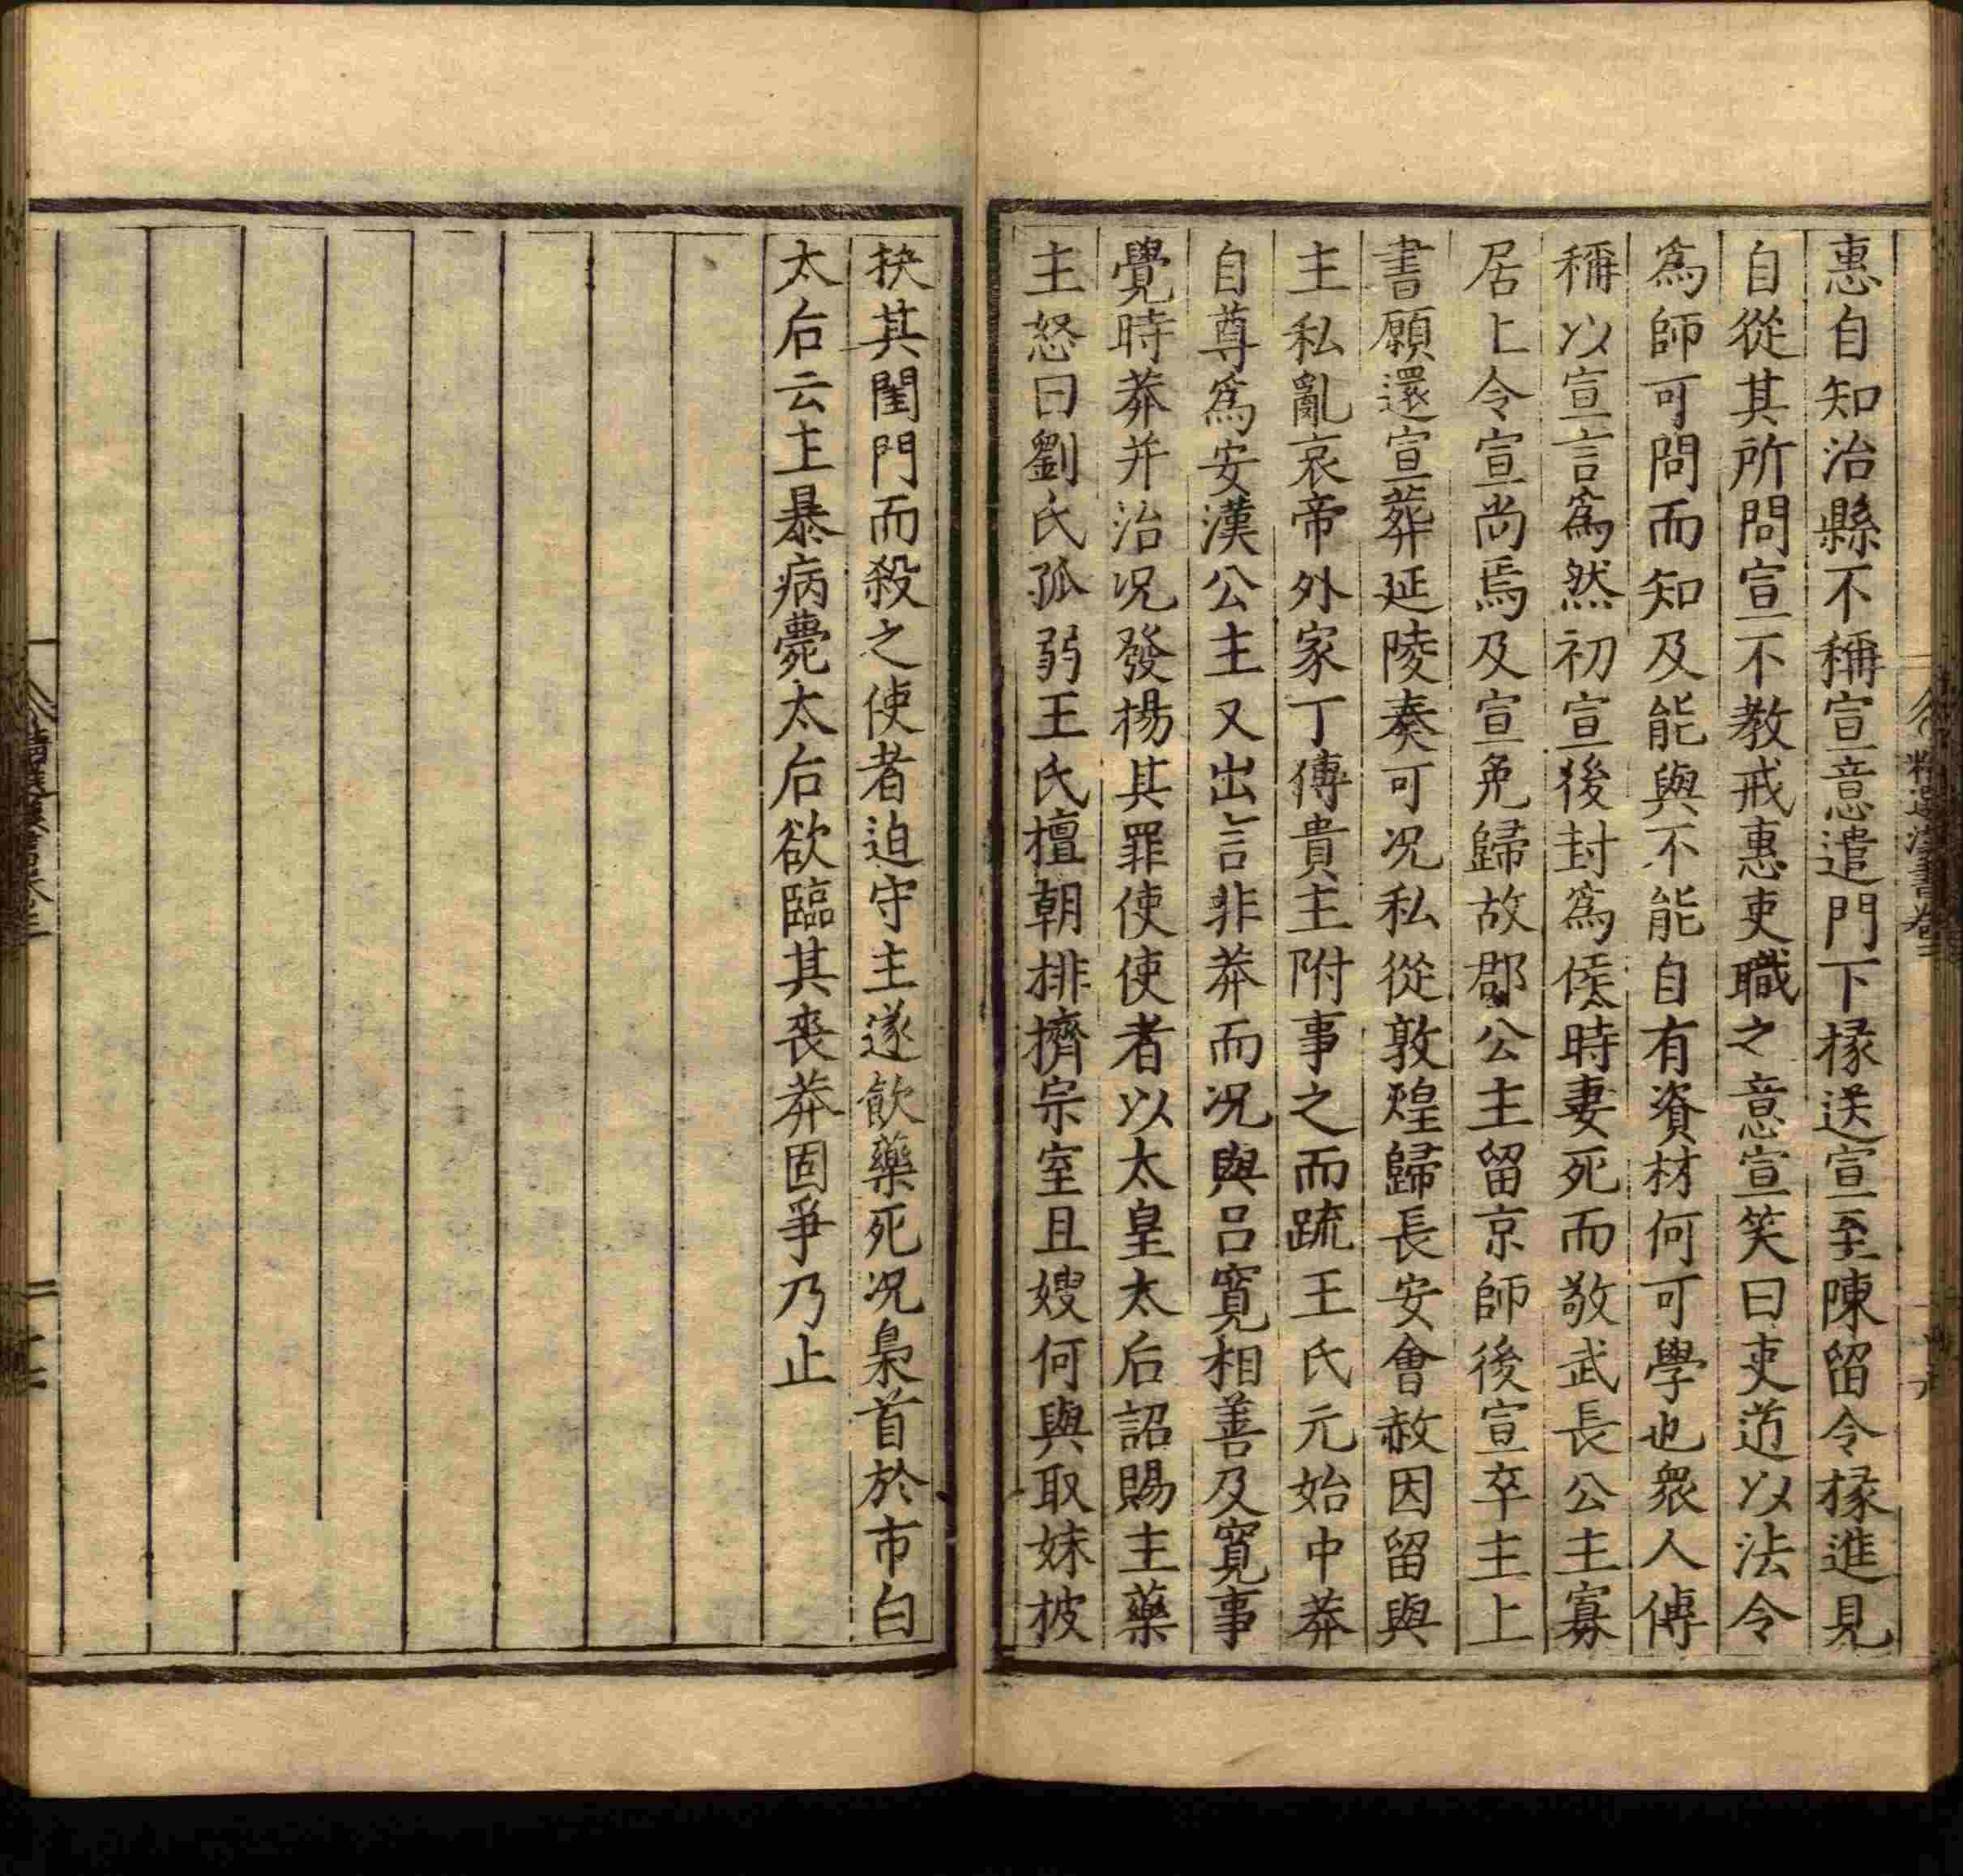 惠自知治縣不稱宣意遣門下掾送宣至陳留令掾進見
自從其所問宣不教戒惠吏職之意宣笑曰吏道以法令
爲師可問而知及能與不能自有資材何可學也衆人傳
稱以宣言爲然初宣後封爲侯時妻死而敬武長公主寡
居上令宣尚焉及宣免歸故郡公主留京師後宣卒主上
書願還宣葬延陵奏可况私從敦煌歸長安會赦因留與
主私亂哀帝外家丁傅貴主附事之而䟽王氏元始中莽
自尊爲安漢公主又出言非莽而况與呂寬相善及寬事
覺時莽并治况發揚其罪使使者以太皇太后詔賜主藥
主怒曰劉氏孤弱王氏擅朝排擠宗室且嫂何與取妹披
抉其閨門而殺之使者迫守主遂飲藥死况梟首於市白
太后云主暴病薨太后欲臨其喪莽固爭乃止